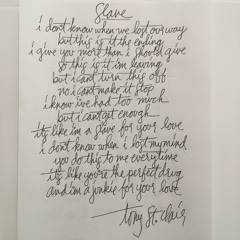 Slave
i don't know when we lost our way
but this is it the ending
i give you more than i should give
so this is it im leaving
but i cant turn this off
no i cant make it stop
i know ive had too much
but i cant get enough
its like im a slave for your love
i dont know when i lost my mind
you do this to me everytime
its like you're the perfect drug
and im a junkie for your love
Tony St. Clair